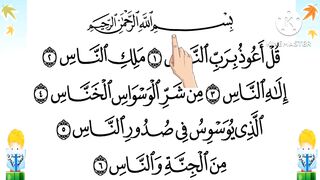 بِسْمِ اللَّهِ الرَّحْمَٰنِ الرَّحِيمِ
قُلْ أَعُوذُ بِرَبِّ النَّاسِ ١ مَلِكِ النَّاسِ ٢
إِلَٰهِ النَّاسِ ٣ مِن شَرِّ الْوَسْوَاسِ الْخَنَّاسِ ٤
الَّذِي يُوَسْوِسُ فِي صُدُورِ النَّاسِ ٥
مِنَ الْجِنَّةِ وَالنَّاسِ ٦